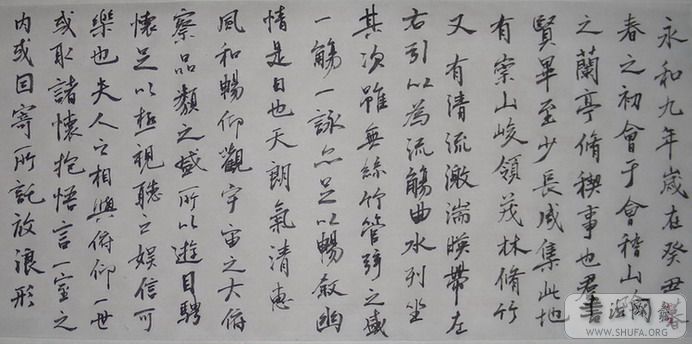 永和九年歲在癸丑暮
春之初會于會稽山
之蘭亭脩稧事也
賢畢至少長咸集此地
有崇山峻領茂林脩竹
又有清流激湍暎帶左
右引以為流觴曲水列坐
其次雖無絲竹管弦之盛
一觴一詠亦足以暢敘幽
情是日也天朗氣清惠
風和暢仰觀宇宙之大俯
察品類之盛所以遊目騁
懷足以極視聽之娛信可
樂也夫人之相與俯仰一世
或取諸懷抱悟言一室之
內或因寄所託放浪形
WWW.SHUFA.ORG